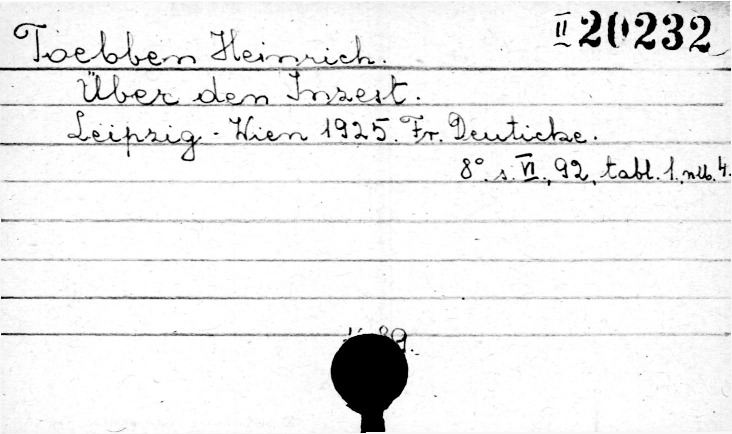 II 20232
Toebben Heinrich.
Über den Inzest.
Leipzig - Wien 1925. Fr. Deuticke.
8°. s. VI., 92, tabl. 1, nlb. 4.
89.